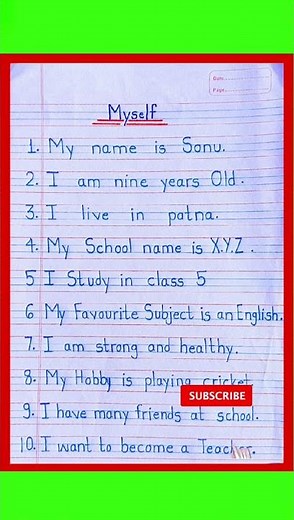 Date
Page
Myself
1. My name is Sonu.
2. I am nine years Old.
3. I live in patna.
4. My School name is X.Y.Z.
5 I Study in class 5
6 My Favourite Subject is an English.
7. I am strong and healthy.
8. My Hobby is playing cricket
SUBSCRIBE
9. I have many friends at school.
10. I want to become a Teacher.